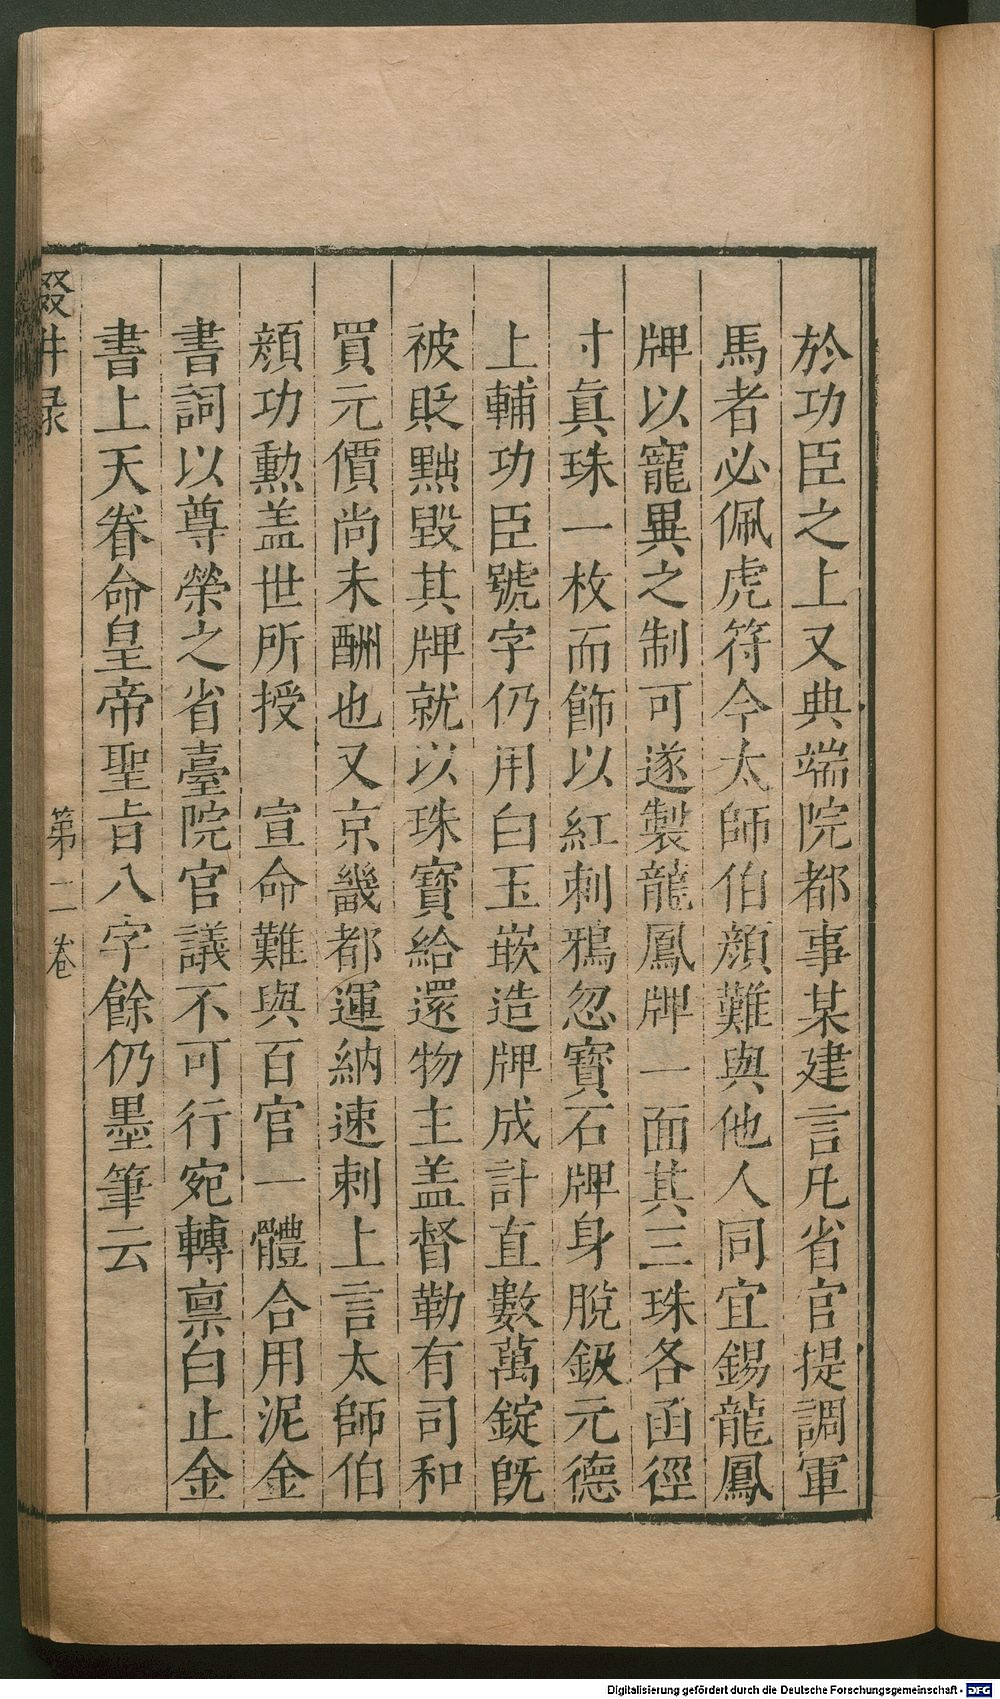 於功臣之上又典端院都事某建言凡省官提調軍
馬者必佩虎符今太師伯顏難與他人同宜錫龍鳳
牌以寵異之制可遂製龍鳳牌一面其三珠各函徑
寸眞珠一枚而飾以紅剌鴉忽寳石牌身脫鈒元德
上輔功臣號字仍用白玉嵌造牌成計直數萬錠旣
被貶黜毀其牌就以珠寳給還物主盖督勒有司和
買元價尚未酬也又京畿都運納速剌上言太師伯
顏功勲盖世所授　宣命難與百官一體合用泥金
書詞以尊榮之省臺院官議不可行宛轉禀白止金
書上天眷命皇帝聖旨八字餘仍墨筆云
輟畊录　第二卷
Digitalisierung gefördert durch die Deutsche Forschungsgemeinschaft - DFG